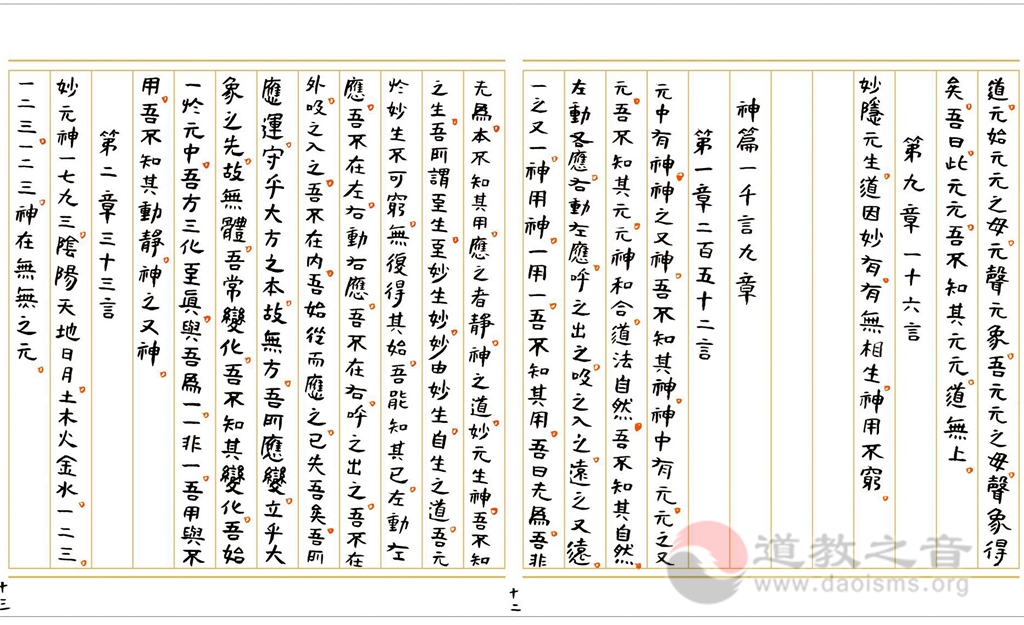 道元始元元之母元聲元象吾元元之母聲象得
矣吾曰此元元吾不知其元元道無上
第九章一十六言
妙隱元生道因妙有有無相生神用不窮
神篇一千言九章
第一章二百五十二言
元中有神神之又神吾不知其神神中有元元之又
元吾不知其元元神和合道法自然吾不知其自然
左動各應右動左應呼之出之吸之入之遠之又遠
一之又一神用神一用一吾不知其用吾曰夫為吾非
十二
夫為本不知其用應之者靜神之道妙元生神吾不知
之生吾所謂至生至妙生妙妙由妙生自生之道吾元
於妙生不可窮無復得其始吾能知其已左動左
應吾不在左右動右應吾不在右呼之出之吾不在
外吸之入之吾不在內吾始從而應之已失吾矣吾所
應運守乎大方之本故無方吾所應變立乎大
象之先故無體吾常變化吾不知其變化吾始
一於元中吾方三化至真與吾為一一非一吾用與不
用吾不知其動靜神之又神
第二章三十三言
妙元神一七九三陰陽天地日月土木火金水一二三
一二三一二三神在無無之元
十三
道教之音
www.daoisms.org